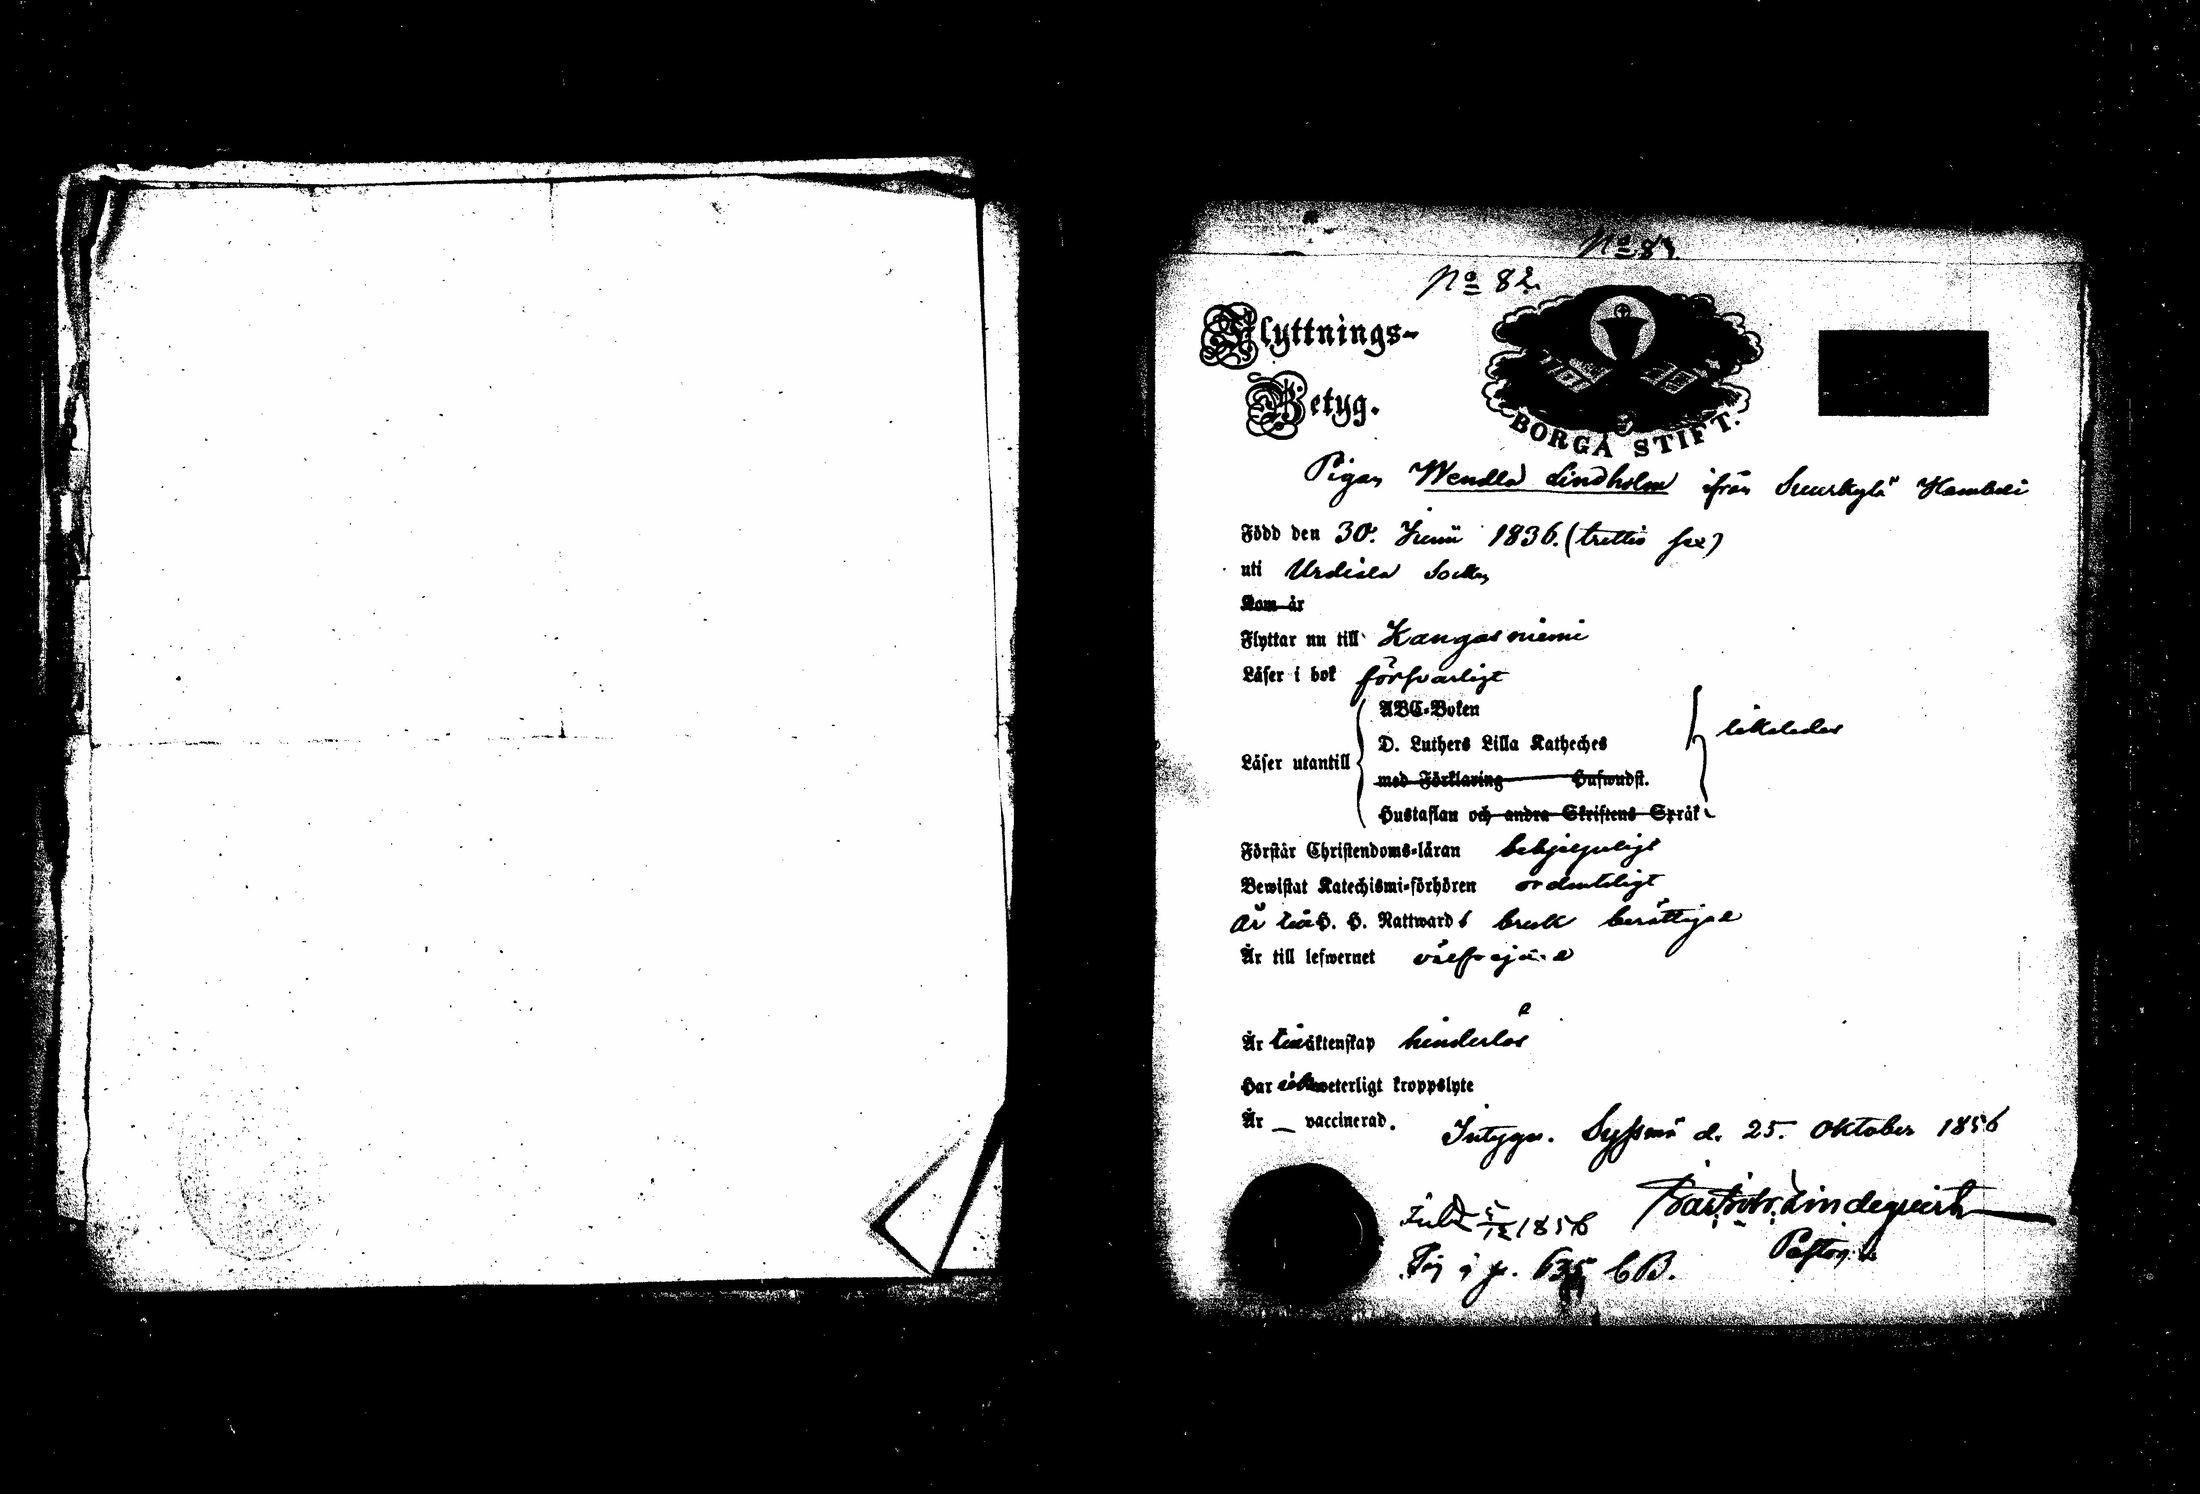 No 8
No 82.
Flyttnings-
Betyg.
BORGÅ STIFT.
Pigan Wendla Lindholm ifrån Suurkylä
Född den 30. Junii 1836. (trettio sex)
uti Urdiala Socken
Kom år
Flyttar nu till Kangasniemi
Läser i bok försvarligt
Läser utantill
ABC-Boken
D. Luthers Lilla Katheches
med Förklaring Huswudst.
Hustaflan och andra Skriftens Språk
likaledes
Förstår Christendoms-läran behjelpligt
Bewistat Katechismi-förhören ordentligt
är till H. H. Nattwards bruk berättigad
Är till lefwernet välfrejdad
Är till äktenskap hinderlös
Har icke weterligt kroppslyte
Är — vaccinerad.
Intygar. Sysmä d. 25. Oktober 1856
Lindeqvist
Pastor
Inl. 5/12 1856
Pig. å p. 635 CB.